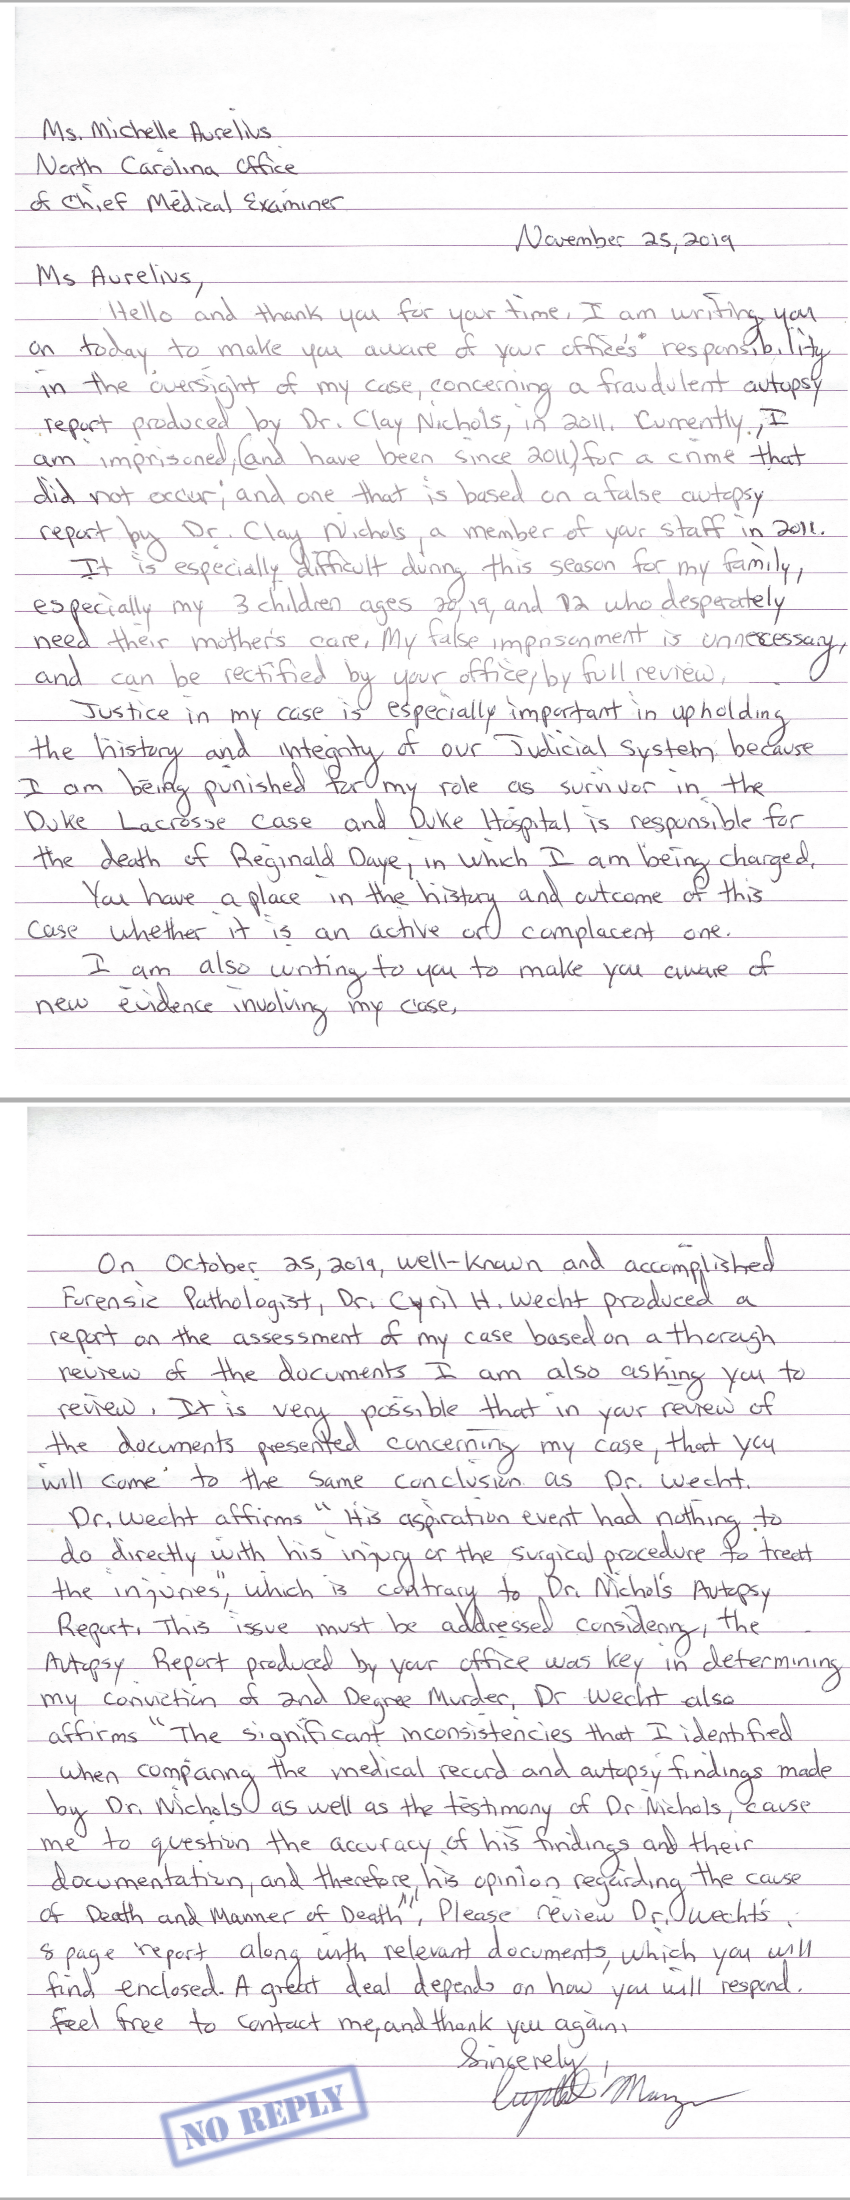 Ms. Michelle Aurelius
North Carolina Office
of Chief Medical Examiner
November 25, 2019
Ms Aurelius,
Hello and thank you for your time. I am writing you
on today to make you aware of your office's" responsibility
in the oversight of my case, concerning a fraudulent autopsy
report produced by Dr. Clay Nichols, in 2011. Currently, I
am imprisoned, (and have been since 2011) for a crime that
did not occur; and one that is based on a false autopsy
report by Dr. Clay Nichols, a member of your staff in 2011.
It is especially difficult during this season for my family,
especially my 3 children ages 20, 19, and 12 who desperately
need their mother's care. My false imprisonment is unnecessary,
and can be rectified by your office, by full review.
Justice in my case is especially important in upholding
the history and integrity of our Judicial System because
I am being punished for my role as survivor in the
Duke Lacrosse Case and Duke Hospital is responsible for
the death of Reginald Daye, in which I am being charged.
You have a place in the history and outcome of this
case whether it is an active or complacent one.
I am also writing to you to make you aware of
new evidence involving my case,
On October 25, 2019, well-known and accomplished
Forensic Pathologist, Dr. Cyril H. Wecht produced a
report on the assessment of my case based on a thorough
review of the documents I am also asking you to
review. It is very possible that in your review of
the documents presented concerning my case, that you
will come to the same conclusion as Dr. Wecht.
Dr. Wecht affirms "His aspiration event had nothing to
do directly with his injury or the surgical procedure to treat
the injuries", which is contrary to Dr. Nichol's Autopsy
Report. This issue must be addressed considering, the
Autopsy Report produced by your office was key in determining
my conviction of 2nd Degree Murder. Dr Wecht also
affirms "The significant inconsistencies that I identified
when comparing the medical record and autopsy findings made
by Dr. Nichols as well as the testimony of Dr Nichols, cause
me to question the accuracy of his findings and their
documentation, and therefore, his opinion regarding the cause
of Death and Manner of Death". Please review Dr. Wecht's
8 page report along with relevant documents, which you will
find enclosed. A great deal depends on how you will respond.
Feel free to contact me, and thank you again.
Sincerely,
Crystal Mangum
NO REPLY